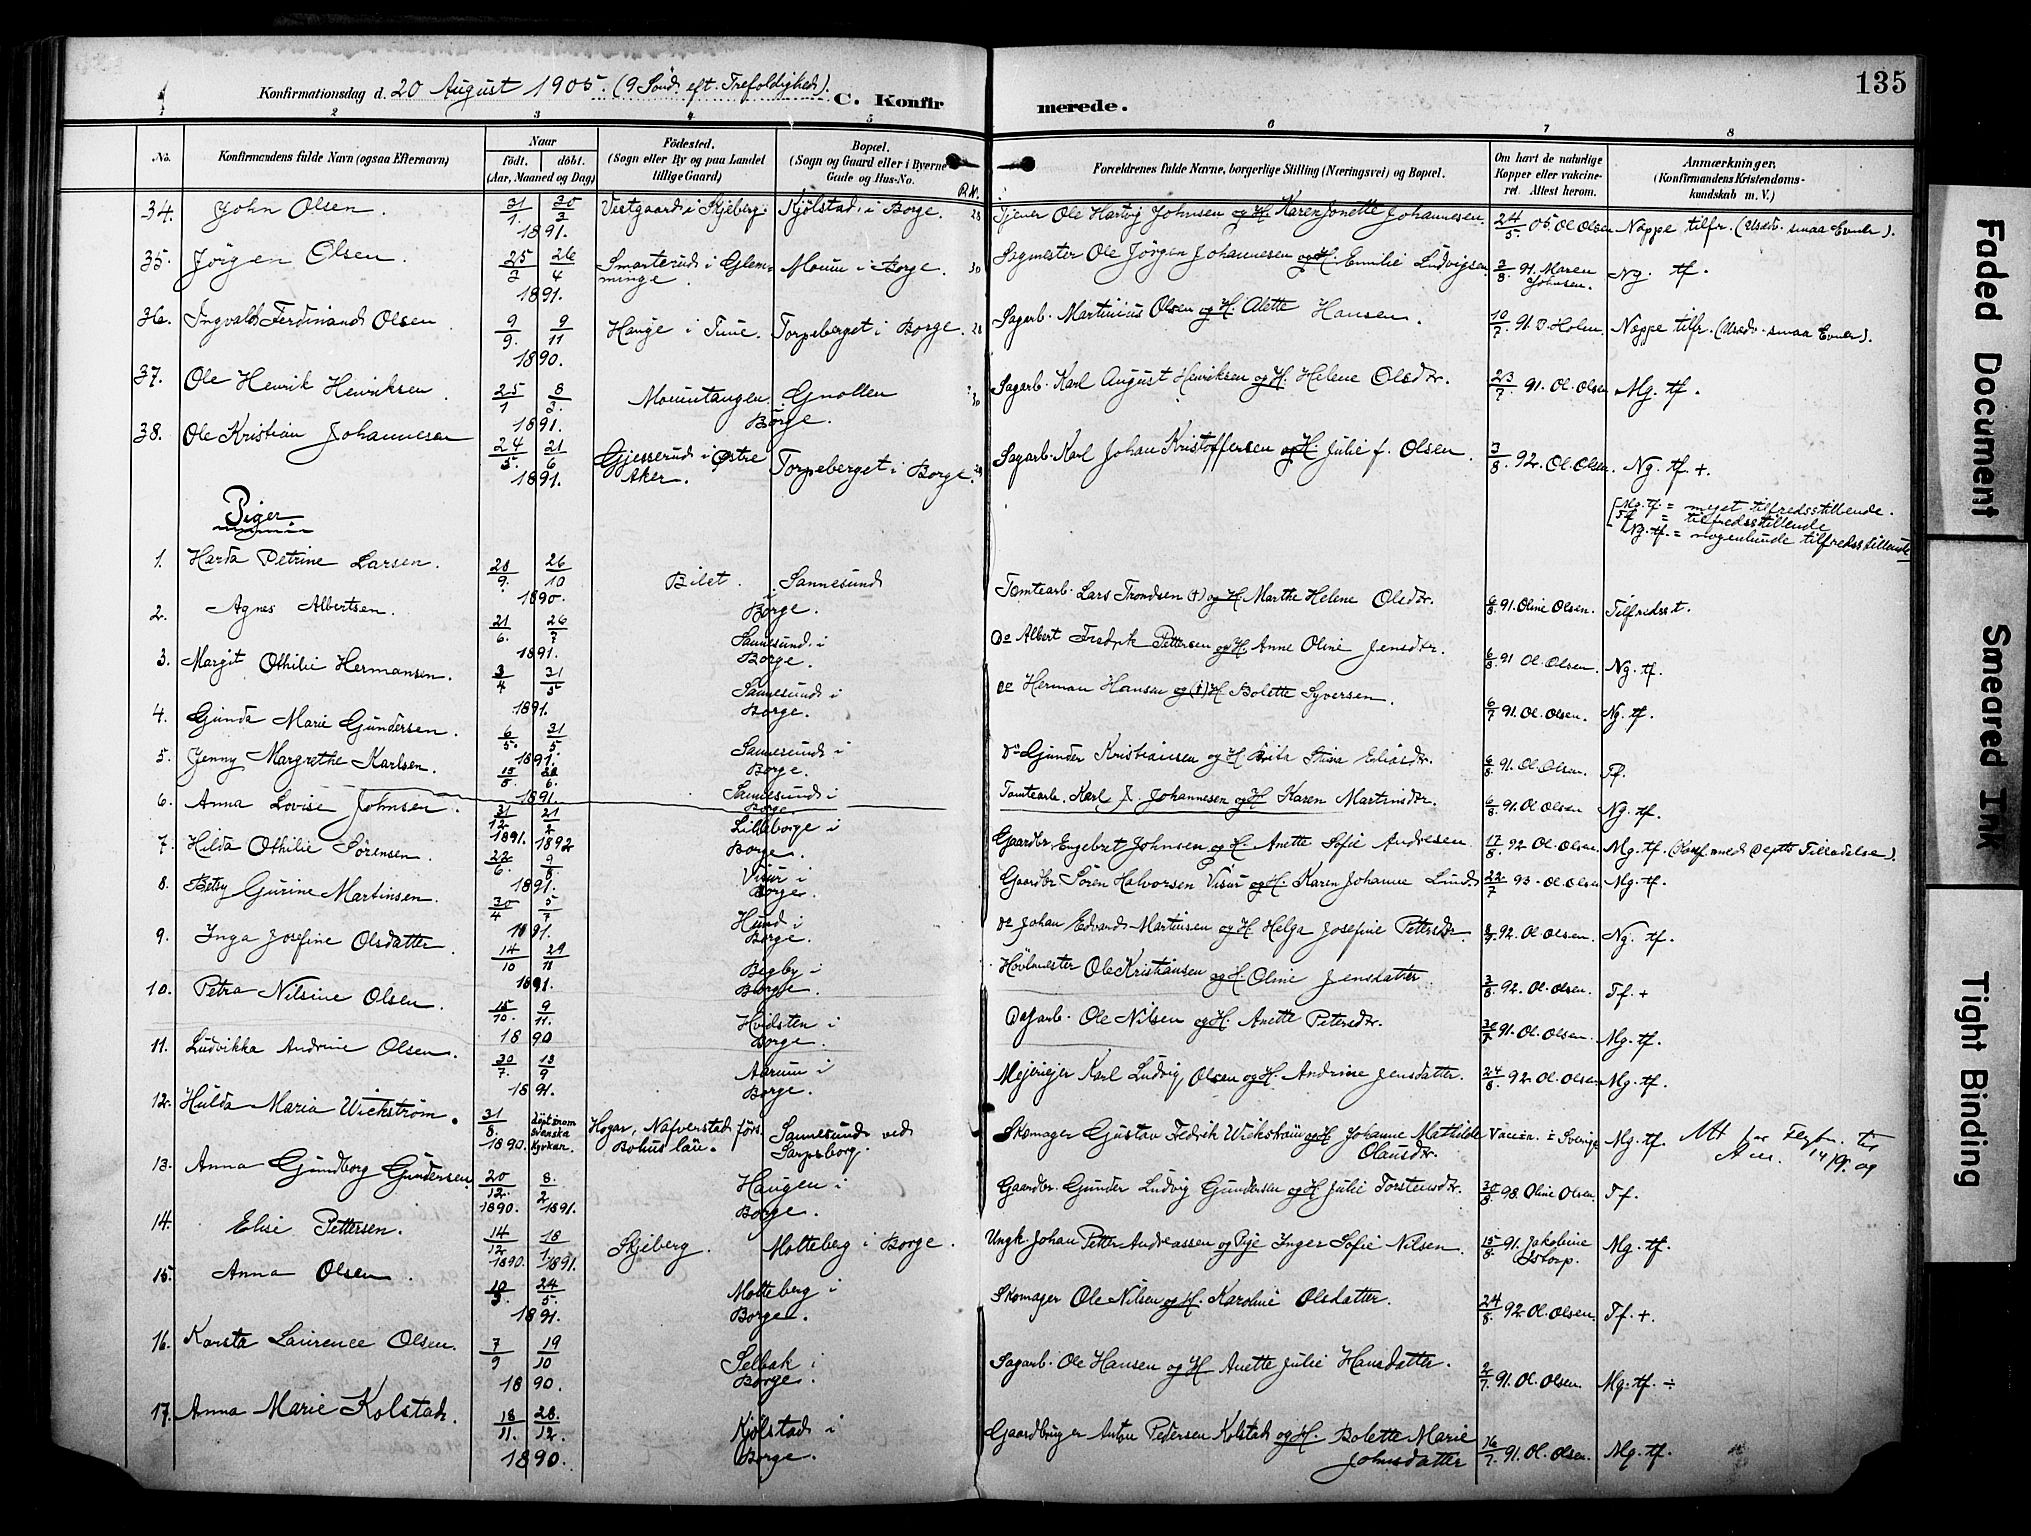 135
Konfirmationsdag d. 20 August 1905. (9 Sönd. eft. Trefoldighed). C. Konfirmerede.
1 2 3 4 5 6 7 8
No. Konfirmandens fulde Navn (ogsaa Efternavn) Naar födt. döbt. (Aar, Maaned og Dag) Födested. (Sogn eller By og paa Landet tillige Gaard) Bopæl. (Sogn og Gaard eller i Byerne Gade og Hus-No. Forældrenes fulde Navne, borgerlige Stilling (Næringsvei) og Bopæl. Om havt de naturlige Kopper eller vaccineret. Attest herom. Anmærkninger. (Konfirmandens Kristendomskundskab m. V.)
34. John Olsen. 31/1. 30/3 1891. Vestgaard i Skjeberg. Kjölstad i Borge. 28 Tjener Ole Hartvig Johnsen og H. Karen Jonette Johannesen. 24/5. 05. Ol. Olsen Neppe tilfr. (Usedv. smaa Evner).
35. Jörgen Olsen. 25/3 26/4 1891. Smarterud i Glemminge. Moum i Borge. 30 Sagmester Ole Jörgen Johannesen og H. Emilie Ludvigsen. 3/8 91. Maren Johnsen. Ng. tf.
36. Ingvald Ferdinand Olsen. 9/9. 9/11 1890. Hauge i Tune. Torpeberget i Borge. 28 Sagarb. Martinius Olsen og H. Alette Hansen. 10/7 91. J. Holm. Neppe tilfr. (Usedv. smaa Evner).
37. Ole Henrik Henriksen. 25/1 8/3. 1891. Moumtangen. Gnollen Borge. 30 Sagarb. Karl August Henriksen og H. Helene Olsdtr. 23/7 91. Ol. Olsen Mg. tf.
38. Ole Kristian Johannesen 24/5. 21/6 1891. Gjesserud i Östre Aker. Torpeberget i Borge. 28 Sagarb. Karl Johan Kristoffersen og H. Julie f. Olsen. 3/8 92. Ol. Olsen. Ng. tf. +.
Piger
[Mg. tf. = meget tilfredsstillende.
Tf = tilfredsstillende
Ng. tf. = nogenlunde tilfredsstillende
1. Harda Petrine Larsen. 28/9. 26/10 1890. Bilet. Sannesund i Borge. Tomtearb. Lars Trondsen (+) og H. Marthe Helene Olsdtr. 6/8 91. Oline Olsen. Tilfredsst.
2. Agnes Albertsen. 21/6. 26/7 1891. Sannesund i Borge. Do Albert Fredrik Pettersen og H. Anne Oline Jensdtr. 6/8 91 Ol. Olsen. Ng. tf.
3. Margit Othilie Hermansen. 3/4 31/5 1891. Sannesund i Borge. Do Herman Hansen og (+) H Bolette Syversen. 6/7 91. Ol. Olsen. Ng. tf.
4. Gunda Marie Gundersen. 6/5. 31/5 1891. Sannesund i Borge. Do Gunder Kristiansen og H. Brita Stina Eliasdtr. 6/8 91. Ol. Olsen. Tf.
5. Jenny Margrethe Karlsen. 15/5 28/6. 1891. Sannesund i Borge Tomtearb. Karl J. Johannesen og H Karen Martinsdtr. 6/8 91. Ol Olsen Ng. tf.
6. Anna Lovise Johnsen. 31/12 1891. 21/2 1892 Lilleborge i Borge. Gaardbr. Engebret Johnsen og H. Anette Sofie Andresen. 17/8 92 Ol. Olsen. Mg. tf. (Konf. med Depts Tilladelse).
7. Hilda Othilie Sörensen. 22/6. 9/8 1891. Visur i Borge. Gaardbr Sören Halvorsen Visur og H. Karen Johanne Lund. 22/7 93. Ol. Olsen Mg. tf.
8. Betsy Gurine Martinsen. 30/4 5/7 1891. Hund i Borge. Do Johan Edvard Martinsen og H Helga Josefine Pettersdtr. 92. Ol Olsen. Ng. tf.
9. Inga Josefine Olsdatter. 14/10 29/11 1891. Begby i Borge. Hövlmester Ole Kristiansen og H. Oline Jensdatter 3/8 92. Ol. Olsen. Tf. +
10. Petra Nilsine Olsen. 15/10. 9/11. 1890 Hvidsten i Borge. Dagarb. Ole Nilsen og H. Anette Petersdtr. 30/7 91. Ol. Olsen. Mg. tf.
11. Ludvikka Andrine Olsen. 30/7. 13/9 1891. Aarum i Borge. Mejeriejer Karl Ludvig Olsen og H. Andrine Jensdatter. 24/8. 92. Ol. Olsen Mg. tf.
12. Hulda Maria Wickström. 31/8. 1890. döpt inom svenska kyrkan. Hogar, Nafverstad förs. Bohuslän. Sannesund ved Sarpsborg. Skomager Gustav Fredrik Wickström og H Johanne Mathilde Olausdtr. Vaccin. i Sverige Mg. tf. Att for 14/9.
13. Anna Gundborg Gundersen. 20/12. 1890. 8/2 1891. Haugen i Borge. Gaardbr. Gunder Ludvig Gundersen og H Julie Torstensdtr. 30/8 98. Oline Olsen Tf.
14. Elise Pettersen. 14/12 1890. 18/1. 1891. Skjeberg. Molteberg i Borge. Ungk. Johan Petter Andreassen og Pige Inger Sofie Nilsen. 15/8. 91. Jakobine Istorp. Mg. tf.
15. Anna Olsen. 10/3. 24/5. 1891. Molteberg i Borge. Skomager Ole Nilsen og H. Karoline Olsdatter. 24/8. 92 Ol. Olsen. Tf. +.
16. Karsta Laurence Olsen. 7/9 19/10 1890. Selbak i Borge. Sagarb. Ole Hansen og H Anette Julie Hansdatter. 2/7. 91. Ol. Olsen. Mg. tf. ÷
17. Anna Marie Kolstad. 18/11. 28./12. 1890. Kjölstad i Borge. Gaardbruger Anton Pedersen Kolstad og H. Bolette Marie Johnsdatter 16/7 91. Ol. Olsen. Mg. tf.
Faded Document
Smeared Ink
Tight Binding